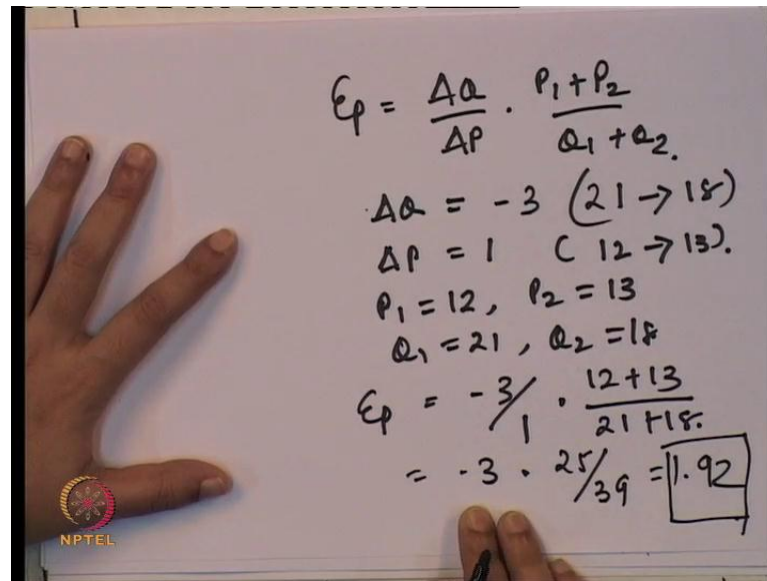 Ep = ΔQ/ΔP · P1+P2/Q1+Q2.
ΔQ = -3 (21 → 18)
ΔP = 1 (12 → 13).
P1 = 12, P2 = 13
Q1 = 21, Q2 = 18
Ep = -3/1 · 12+13/21+18.
= -3 · 25/39 = 1.92
NPTEL